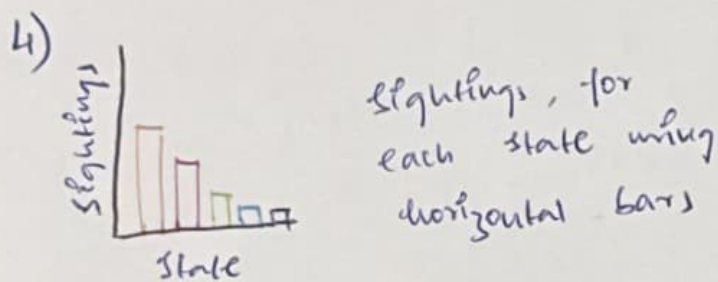 4)
Sightings
State
Sightings, for
each state using
horizontal bars